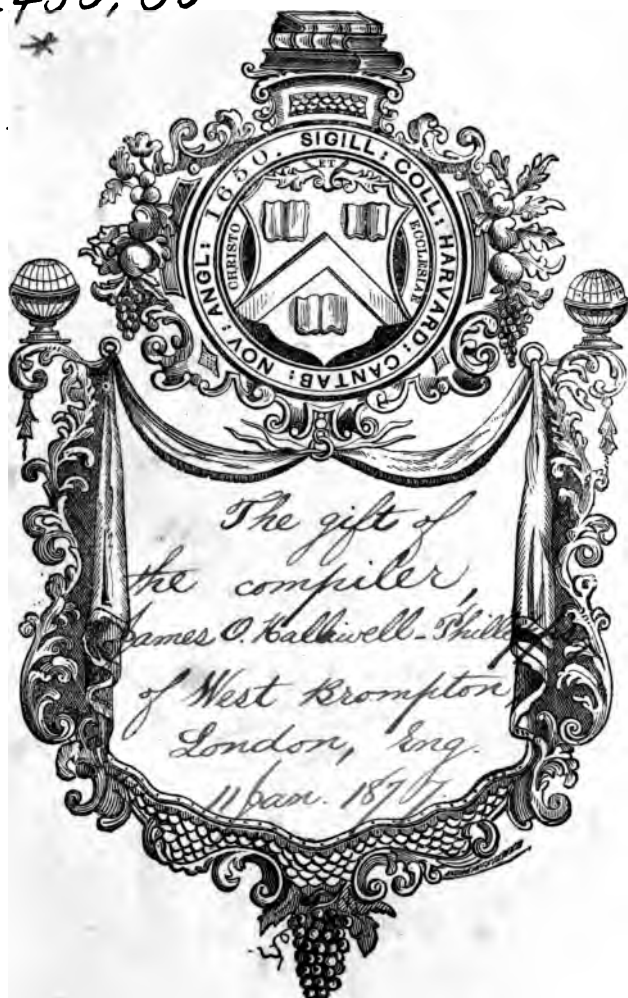 SIGILL: COLL: HARVARD: CANTAB: NOV: ANGL: 1650.
CHRISTO ET ECCLESIAE
The gift of
the compiler,
James O. Halliwell-Phillipps
of West Brompton,
London, Eng.
11 Jan. 1877.